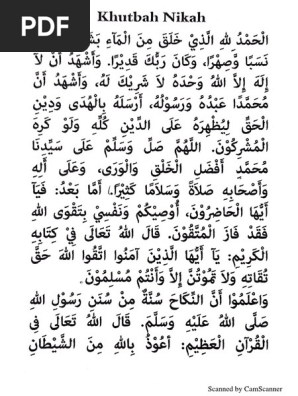 PDF
Khutbah Nikah
الْحَمْدُ لِلهِ الَّذِيْ خَلَقَ مِنَ الْمَآءِ
نَسَبًا وَّصِهْرًا، وَكَانَ رَبُّكَ قَدِيْرًا. وَأَشْهَدُ أَنْ لَا
إِلَهَ إِلاَّ اللهُ وَحْدَهُ لَا شَرِيْكَ لَهُ، وَأَشْهَدُ أَنَّ
مُحَمَّدًا عَبْدُهُ وَرَسُوْلُهُ، أَرْسَلَهُ بِالْهُدَى وَدِيْنِ
الْحَقِّ لِيُظْهِرَهُ عَلَى الدِّيْنِ كُلِّهِ وَلَوْ كَرِهَ
الْمُشْرِكُوْنَ. اللَّهُمَّ صَلِّ وَسَلِّمْ عَلَى سَيِّدِنَا
مُحَمَّدٍ أَفْضَلِ الْخَلْقِ وَالْوَرَى، وَعَلَى أَلِهِ
وَأَصْحَابِهِ صَلَاةً وَسَلَامًا كَثِيْرًا، أَمَّا بَعْدُ: فَيَآ
أَيُّهَا الْحَاضِرُوْنَ، أُوْصِيْكُمْ وَنَفْسِيْ بِتَقْوَى اللهِ
فَقَدْ فَازَ الْمُتَّقُوْنَ. قَالَ اللهُ تَعَالَى فِيْ كِتَابِهِ
الْكَرِيْمِ: يَآ أَيُّهَا الَّذِيْنَ آمَنُوْا اتَّقُوا اللهَ حَقَّ
تُقَاتِهِ وَلَا تَمُوْتُنَّ إِلاَّ وَأَنْتُمْ مُسْلِمُوْنَ.
وَاعْلَمُوْا أَنَّ النِّكَاحَ سُنَّةٌ مِنْ سُنَنِ رَسُوْلِ اللهِ
صَلَّى اللهُ عَلَيْهِ وَسَلَّمَ. قَالَ اللهُ تَعَالَى فِي
الْقُرْآنِ الْعَظِيْمِ: أَعُوْذُ بِاللهِ مِنَ الشَّيْطَانِ
Scanned by CamScanner